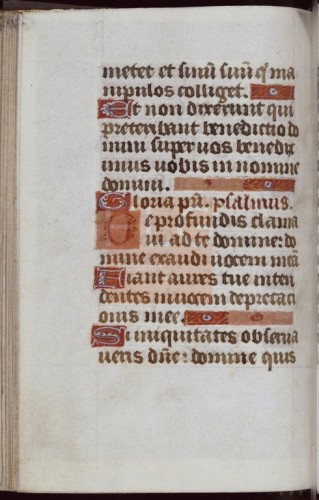 metet et sinū suū q̄ ma
nipulos colliget.
Et non dixerunt qui
preteribant benedictio do
mini super vos benedix
imus vobis in nomine
domini.
Gloria pr̄i. psalmus.
De profundis clama
vi ad te domine: do
mine exaudi vocem meā
Fiant aures tue inten
dentes in vocem depretaci
onis mee.
Si iniquitates observa
veris dn̄e: domine quis